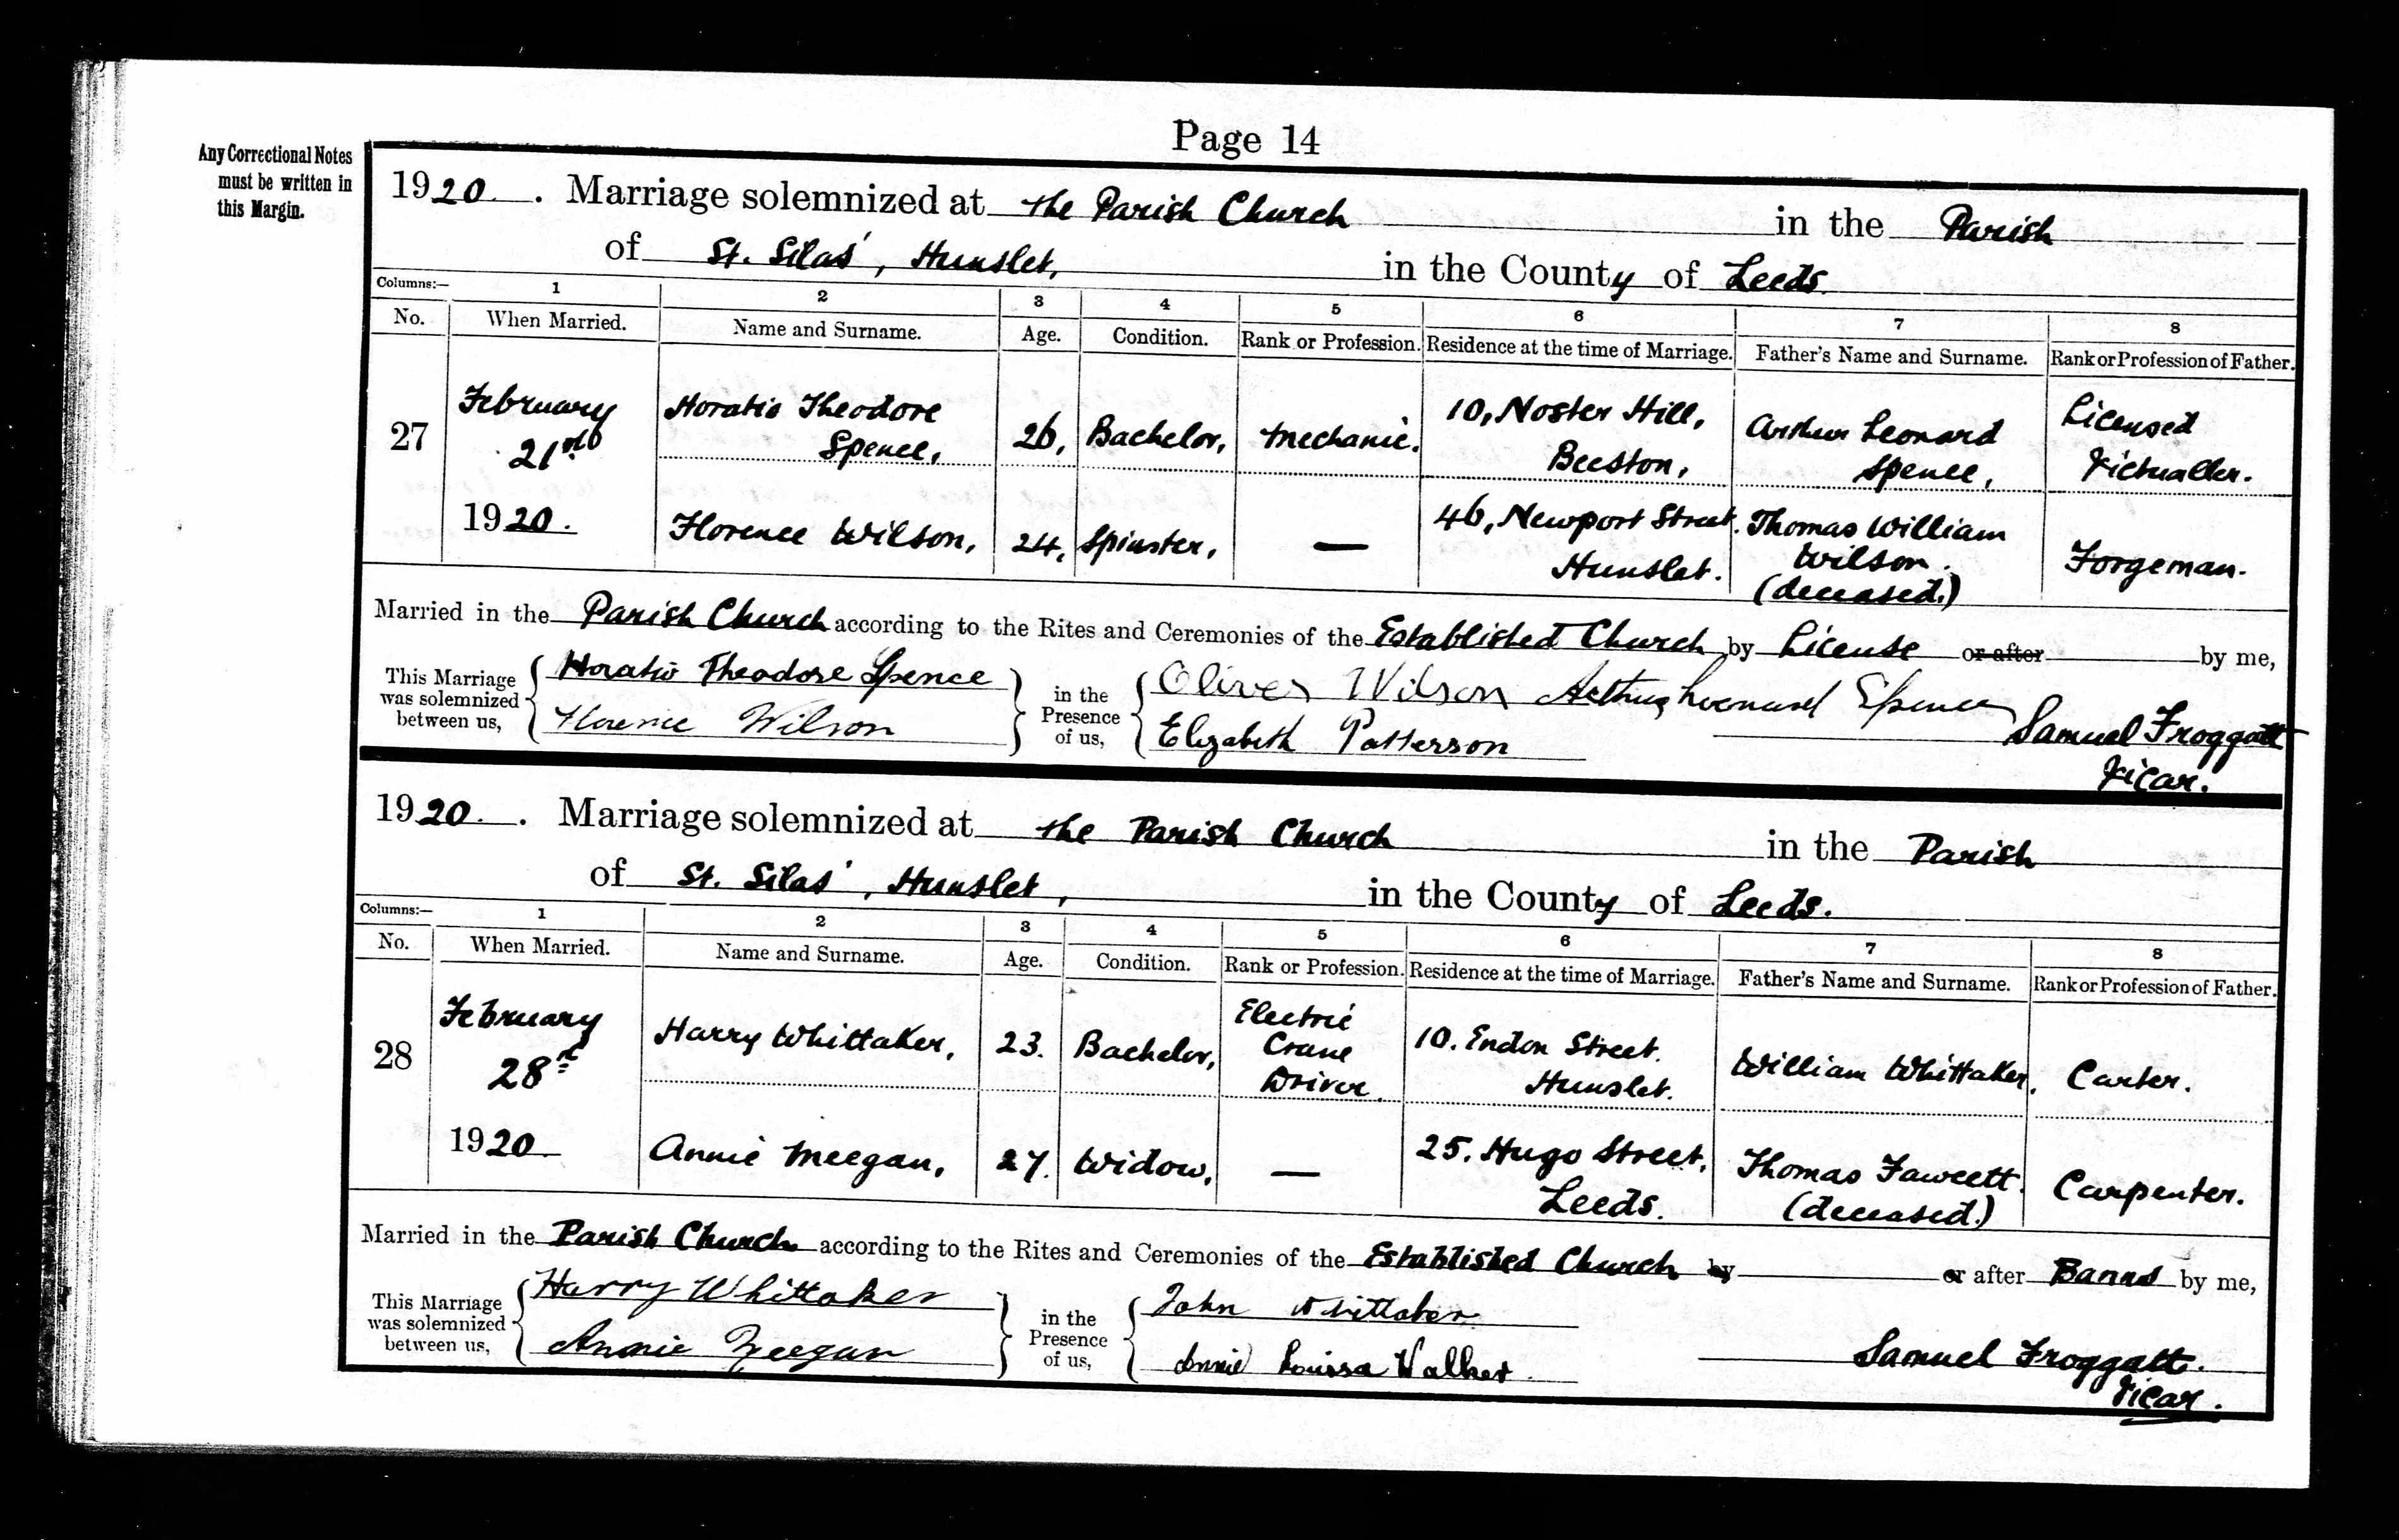 Page 14
Any Correctional Notes
must be written in
this Margin.
1920. Marriage solemnized at the Parish Church in the Parish
of St. Silas', Hunslet, in the County of Leeds.
Columns:— 1 2 3 4 5 6 7 8
No. When Married. Name and Surname. Age. Condition. Rank or Profession. Residence at the time of Marriage. Father's Name and Surname. Rank or Profession of Father.
27 February 21st 1920. Horatio Theodore Spence, 26, Bachelor, Mechanic. 10, Noster Hill, Beeston, Arthur Leonard Spence, Licensed Victualler.
Florence Wilson, 24, Spinster, — 46, Newport Street. Hunslet. Thomas William Wilson. (deceased.) Forgeman.
Married in the Parish Church according to the Rites and Ceremonies of the Established Church by License or after by me,
This Marriage was solemnized between us, Horatio Theodore Spence in the Presence of us, Oliver Wilson Arthur Leonard Spence
Florence Wilson Elizabeth Patterson Samuel Froggatt
Vicar.
1920. Marriage solemnized at the Parish Church in the Parish
of St. Silas', Hunslet, in the County of Leeds.
Columns:— 1 2 3 4 5 6 7 8
No. When Married. Name and Surname. Age. Condition. Rank or Profession. Residence at the time of Marriage. Father's Name and Surname. Rank or Profession of Father.
28 February 28th 1920 Harry Whittaker, 23. Bachelor, Electric Crane Driver. 10. Endon Street. Hunslet. William Whittaker, Carter.
Annie Meegan, 27. Widow, — 25. Hugo Street, Leeds. Thomas Fawcett. (deceased.) Carpenter.
Married in the Parish Church according to the Rites and Ceremonies of the Established Church by or after Banns by me,
This Marriage was solemnized between us, Harry Whittaker in the Presence of us, John Whittaker
Annie Meegan Annie Louissa Walker Samuel Froggatt.
Vicar.